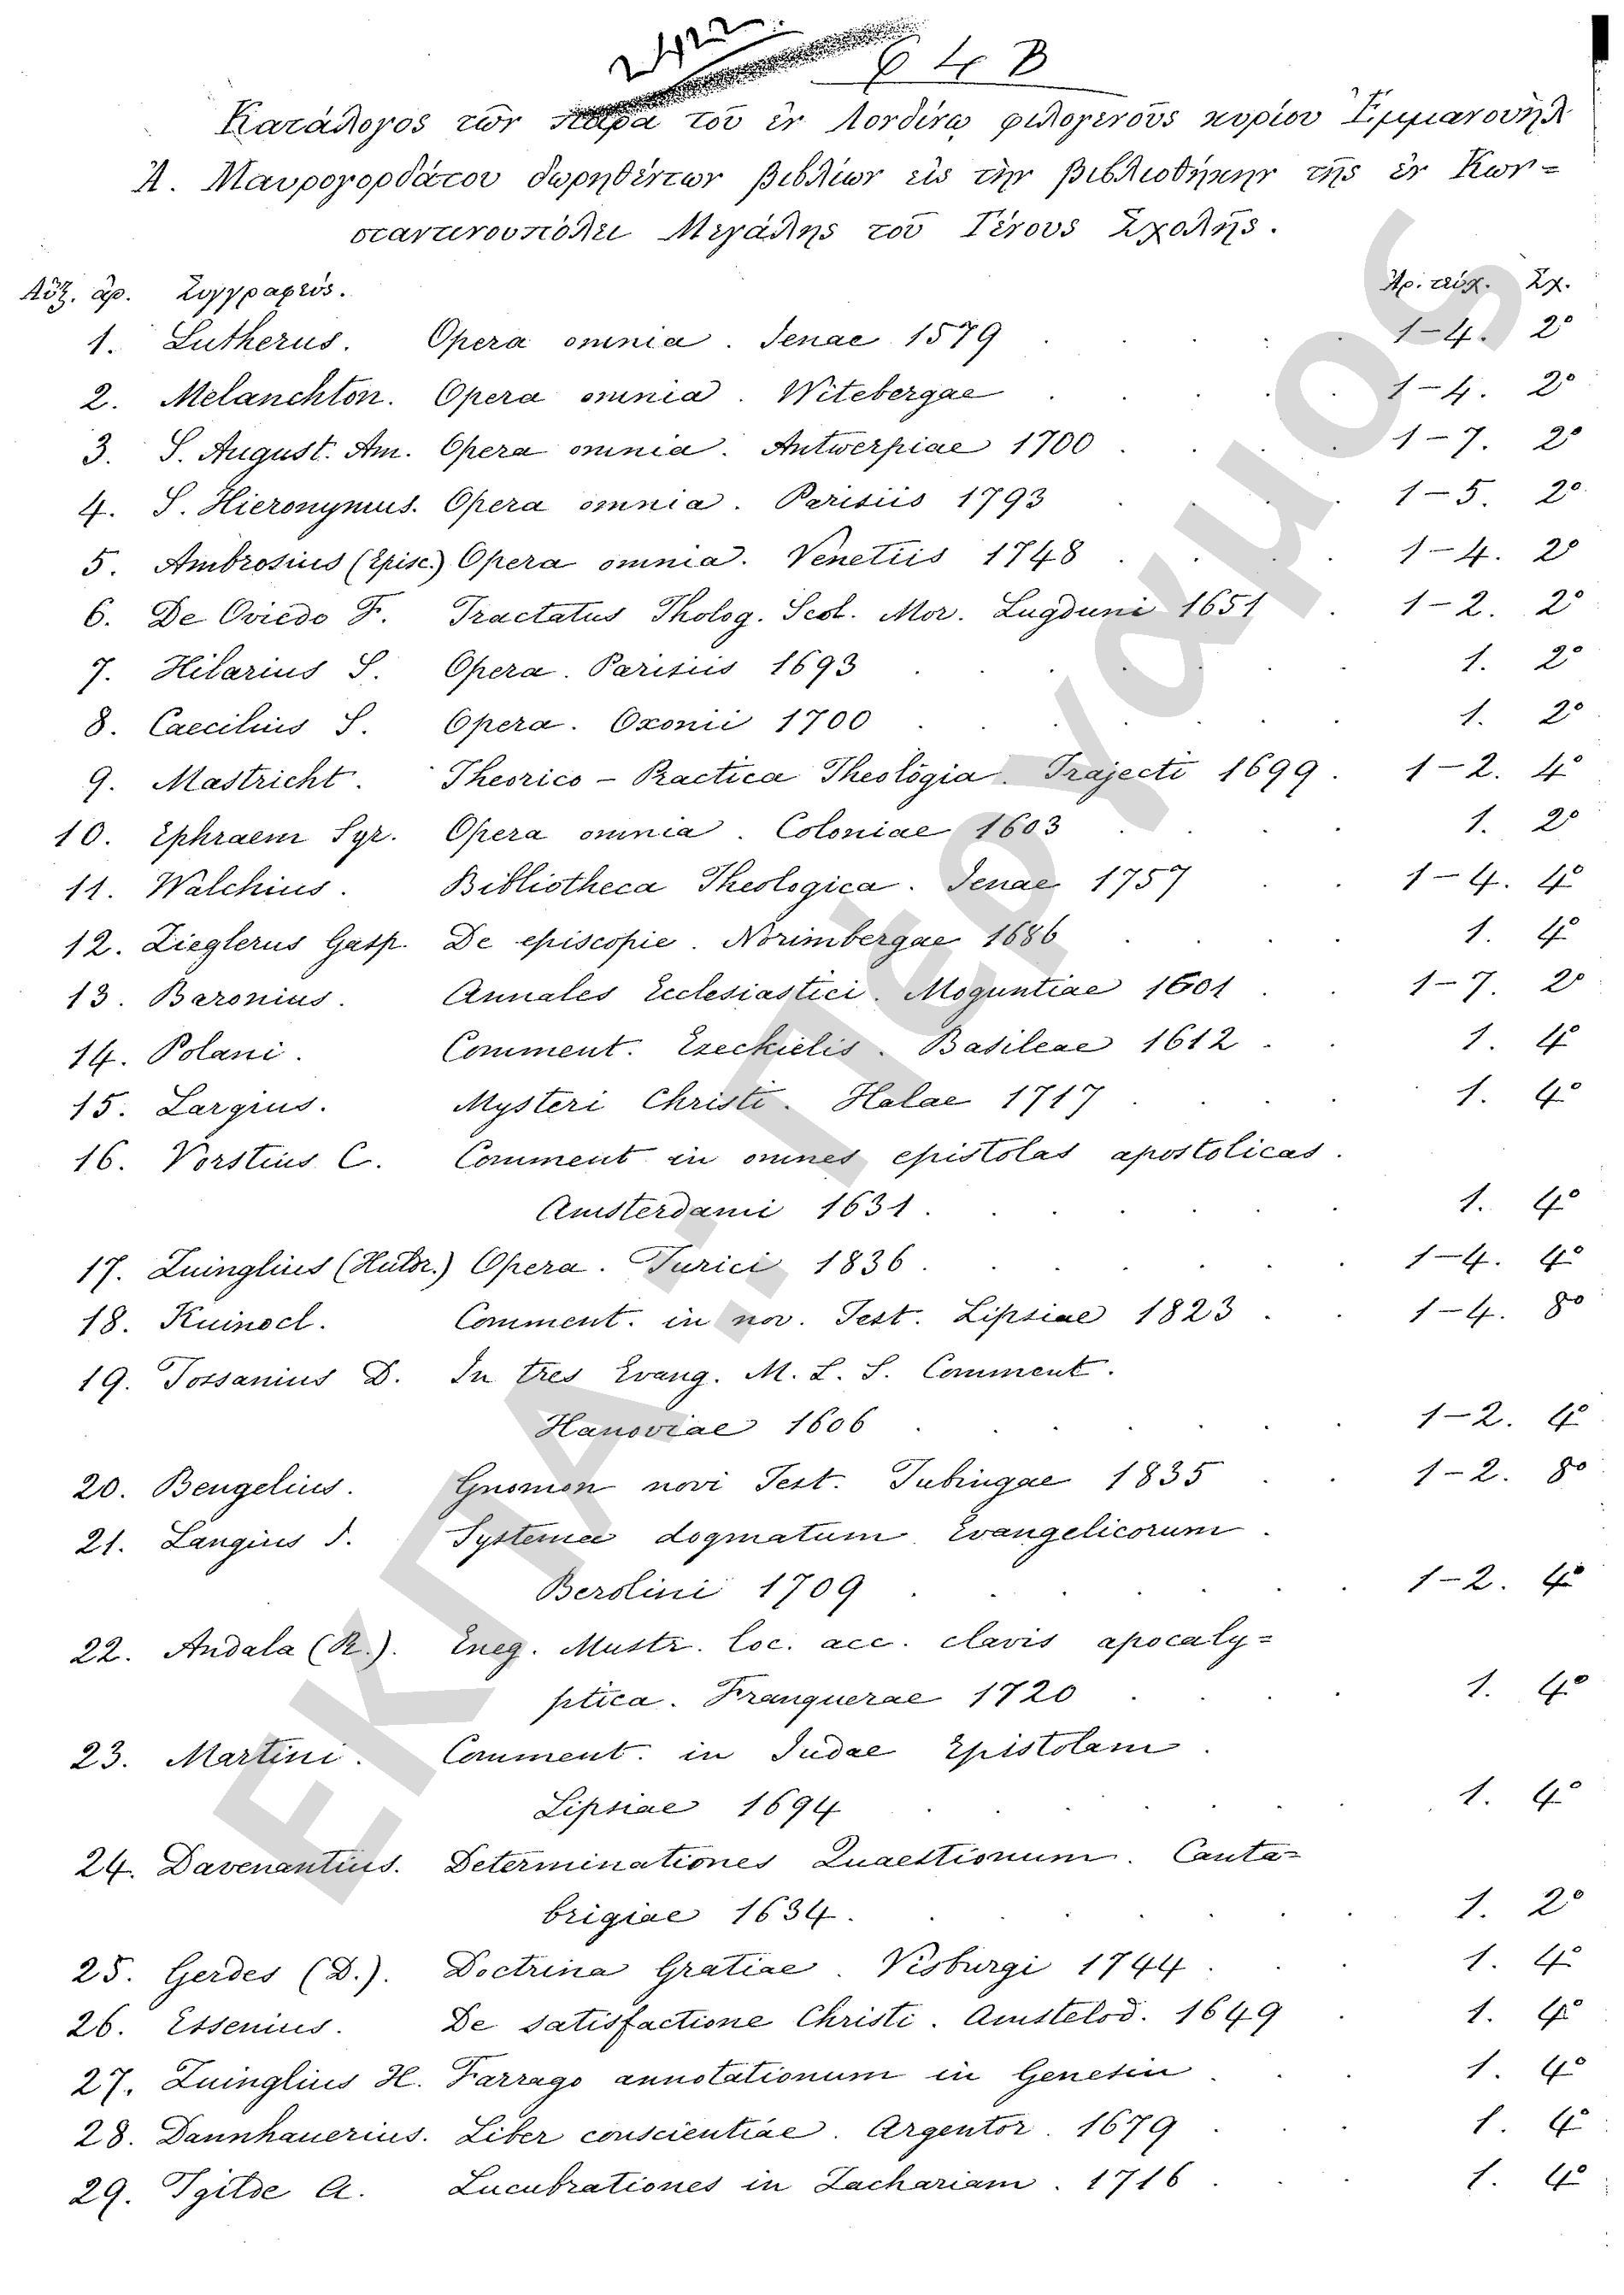 648
Κατάλογος τῶν παρὰ τοῦ ἐν Λονδίνῳ φιλογενοῦς κυρίου Ἐμμανουὴλ
Ἀ. Μαυρογορδάτου δωρηθέντων βιβλίων εἰς τὴν βιβλιοθήκην τῆς ἐν Κων=
σταντινουπόλει Μεγάλης τοῦ Γένους Σχολῆς.
Αὔξ. ἀρ. Συγγραφεύς. Ἀρ. τεύχ. Σχ.
1. Lutherus. Opera omnia. Jenae 1579 1-4. 2°
2. Melanchton. Opera omnia. Witebergae 1-4. 2°
3. S. August. Am. Opera omnia. Antwerpiae 1700 1-7. 2°
4. S. Hieronymus. Opera omnia. Parisiis 1793 1-5. 2°
5. Ambrosius (Episc.) Opera omnia. Venetiis 1748 1-4. 2°
6. De Oviedo F. Tractatus Tholog. Scol. Mor. Lugduni 1651 1-2. 2°
7. Hilarius S. Opera. Parisiis 1693 1. 2°
8. Caecilius S. Opera. Oxonii 1700 1. 2°
9. Mastricht. Theorico-Practica Theologia. Trajecti 1699. 1-2. 4°
10. Ephraem Syr. Opera omnia. Coloniae 1603 1. 2°
11. Walchius. Bibliotheca Theologica. Jenae 1757 1-4. 4°
12. Zieglerus Gasp. De episcopie. Norimbergae 1686 1. 4°
13. Baronius. Annales Ecclesiastici. Moguntiae 1601 1-7. 2°
14. Polani. Comment. Ezeckielis. Basileae 1612 1. 4°
15. Largius. Mysteri Christi. Halae 1717 1. 4°
16. Vorstius C. Comment in omnes epistolas apostolicas.
Amsterdami 1631. 1. 4°
17. Zuinglius (Huldr.) Opera. Turici 1836. 1-4. 4°
18. Kuinoel. Comment. in nov. Test. Lipsiae 1823 1-4. 8°
19. Tossanius D. In tres Evang. M. L. S. Comment.
Hanoviae 1606 1-2. 4°
20. Bengelius. Gnomon novi Test. Tubingae 1835 1-2. 8°
21. Langius J. Systema dogmatum Evangelicorum.
Berolini 1709 1-2. 4°
22. Andala (R.). Eneg. Mustr. loc. acc. clavis apocaly=
ptica. Franquerae 1720 1. 4°
23. Martini. Comment. in Judae Epistolam.
Lipsiae 1694 1. 4°
24. Davenantius. Determinationes Quaestionum. Canta=
brigiae 1634. 1. 2°
25. Gerdes (D.). Doctrina Gratiae. Visburgi 1744. 1. 4°
26. Essenius. De satisfactione Christi. Amstelod. 1649 1. 4°
27. Zuinglius H. Farrago annotationum in Genesin 1. 4°
28. Dannhauerius. Liber conscientiae. Argentor. 1679 1. 4°
29. Tgilde A. Lucubrationes in Zachariam. 1716 1. 4°
ΕΚΠΑ..Πέργαμος